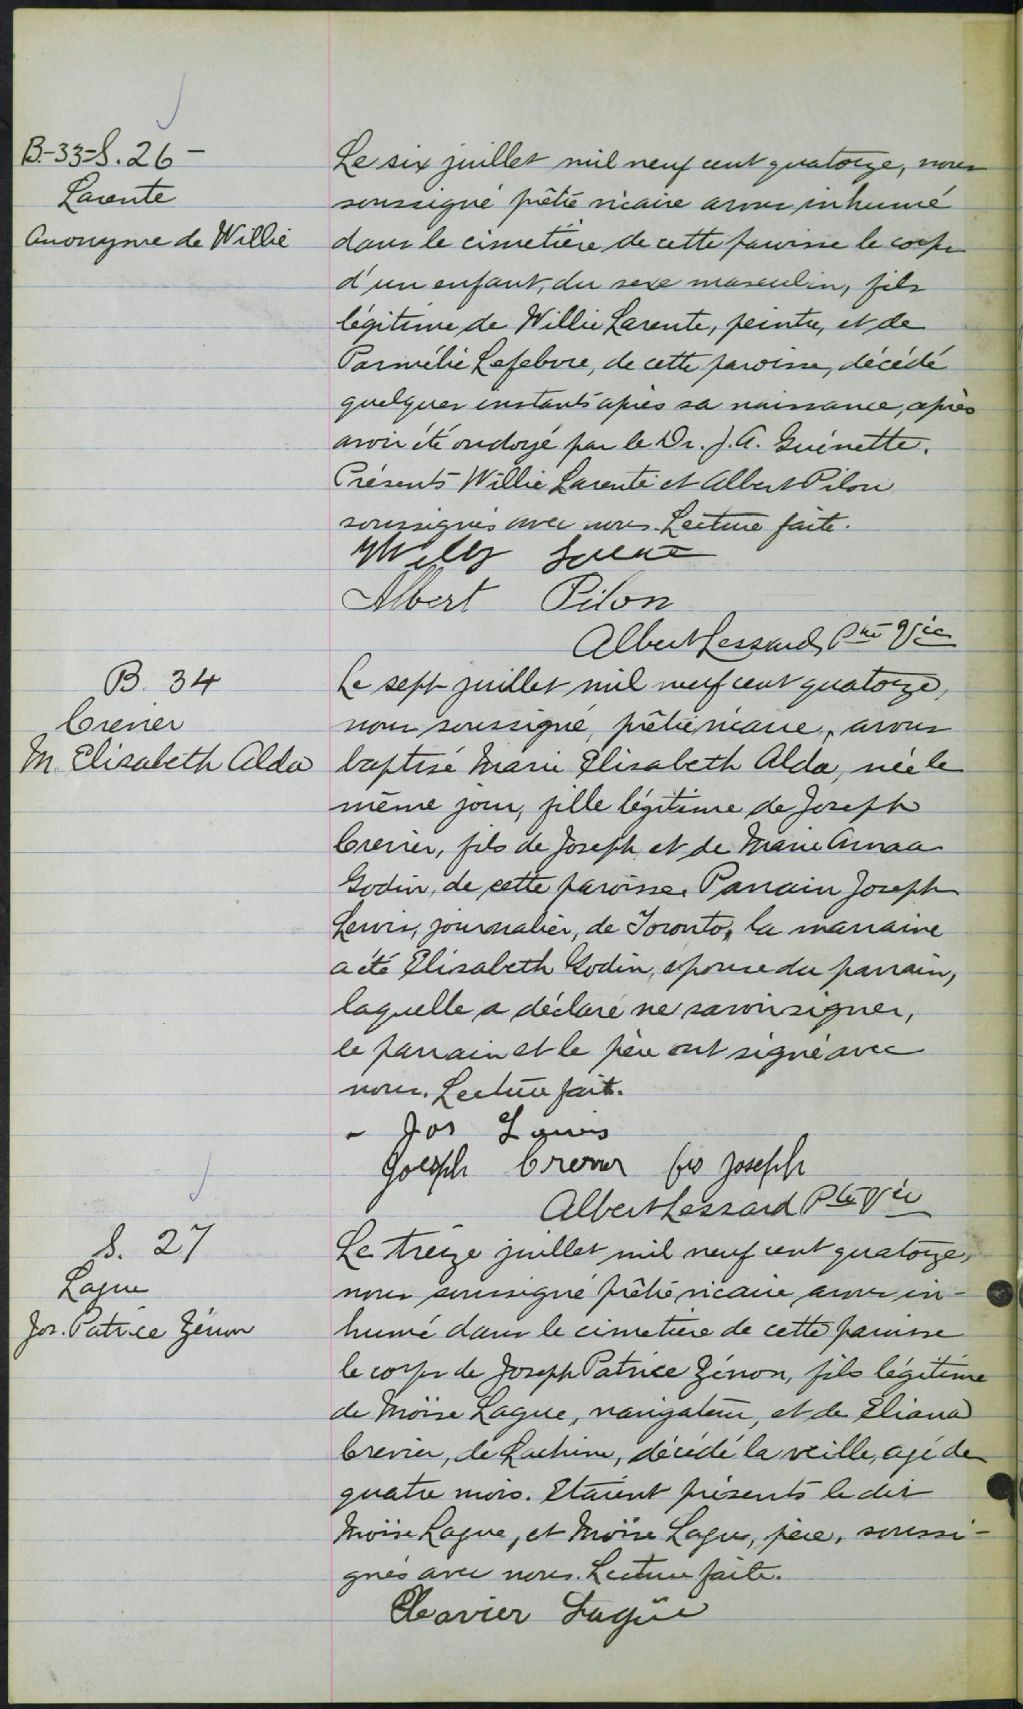 B.-33-S. 26 -
Larente
Anonyme de Willie
Le six juillet mil neuf cent quatorze, nous
soussigné prêtre vicaire avons inhumé
dans le cimetière de cette paroisse le corps
d'un enfant, du sexe masculin, fils
légitime de Willie Larente, peintre, et de
Parmélie Lefebvre, de cette paroisse, décédé
quelques instants après sa naissance, après
avoir été ondoyé par le Dr. J. A. Guénette.
Présents Willie Larente et Albert Pilon
soussignés avec nous. Lecture faite.
Willy
Albert Pilon
Albert Lessard Ptre Vic
B. 34
Crevier
M. Elisabeth Alda
Le sept juillet mil neuf cent quatorze,
nous soussigné, prêtre vicaire, avons
baptisé Marie Elisabeth Alda, née le
même jour, fille légitime de Joseph
Crevier, fils de Joseph, et de Marie Anna
Godin, de cette paroisse. Parrain Joseph
Lewis, journalier, de Toronto, la marraine
a été Elisabeth Godin, épouse du parrain,
laquelle a déclaré ne savoir signer,
le parrain et le père ont signé avec
nous. Lecture fait.
- Jos Lewis
Joesph Crevier fis Joseph
Albert Lessard Ptre Vic
S. 27
Lague
Jos. Patrice Zénon
Le treize juillet mil neuf cent quatorze,
nous soussigné prêtre vicaire avons in-
humé dans le cimetière de cette paroisse
le corps de Joseph Patrice Zénon, fils légitime
de Moïse Lague, navigateur, et de Eliana
Crevier, de Lachine, décédé la veille, agé de
quatre mois. Etaient présents le dit
Moïse Lague, et Moïse Lague, père, soussi-
gnés avec nous. Lecture faite.
Lagüe